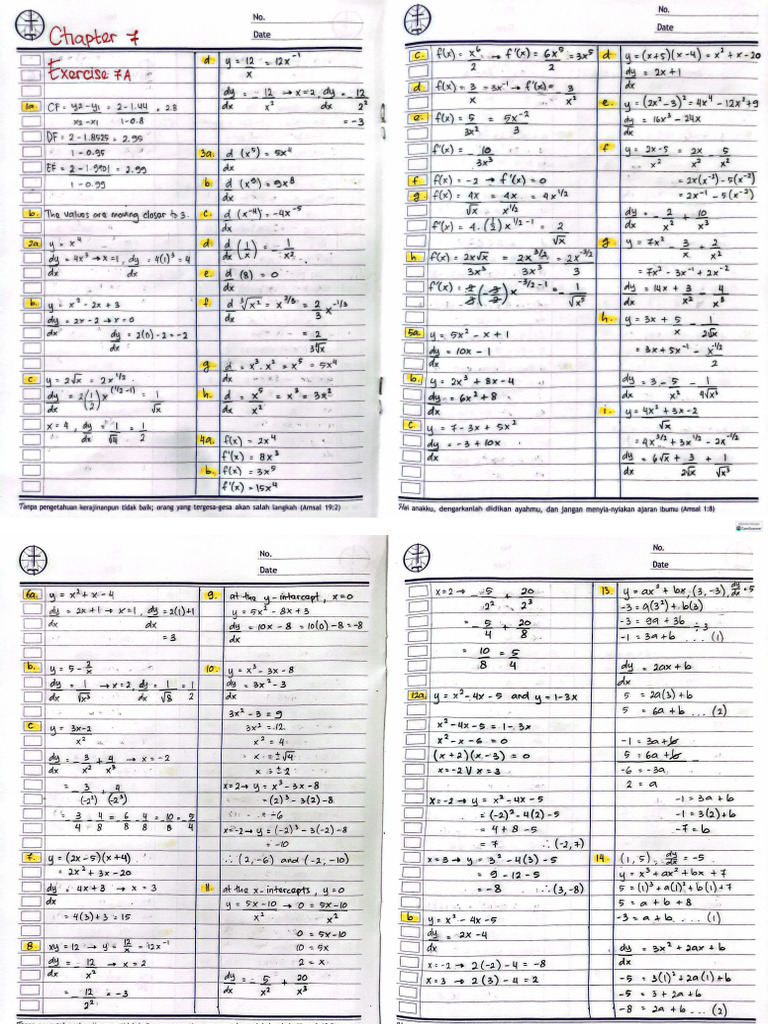 No.
Date
Chapter 7
Exercise 7A
1a CF = y2-y1 = 2-1.44 = 2.8
x2-x1 1-0.8
DF = 2-1.8525 = 2.95
1-0.95
EF = 2-1.9701 = 2.99
1-0.99
b. The values are moving closer to 3.
2a y = x⁴
dy/dx = 4x³ → x=1, dy/dx = 4(1)³ = 4
b. y = x² - 2x + 3
dy/dx = 2x-2 → x=0
dy/dx = 2(0)-2 = -2
c y = 2√x = 2x^(1/2)
dy/dx = 2(1/2)x^(1/2-1) = 1/√x
x=4, dy/dx = 1/√4 = 1/2
d y = 12/x = 12x⁻¹
dy/dx = -12/x² → x=2, dy/dx = -12/2²
= -3
3a. d/dx (x⁵) = 5x⁴
b d/dx (x⁹) = 9x⁸
c. d/dx (x⁻⁴) = -4x⁻⁵
d d/dx (1/x) = -1/x²
e d/dx (8) = 0
f. d/dx ³√x² = x^(2/3) = 2/3 x^(-1/3)
= 2/(3³√x)
g d/dx = x³.x² = x⁵ = 5x⁴
h. d/dx = x⁵/x² = x³ = 3x²
4a. f(x) = 2x⁴
f'(x) = 8x³
b. f(x) = 3x⁵
f'(x) = 15x⁴
Tanpa pengetahuan kerajinanpun tidak baik; orang yang tergesa-gesa akan salah langkah (Amsal 19:2)
No.
Date
c. f(x) = x⁶/2 → f'(x) = 6x⁵/2 = 3x⁵
d f(x) = 3/x = 3x⁻¹ → f'(x) = -3/x²
e. f(x) = 5/3x² = 5x⁻²/3
f'(x) = -10/3x³
f f(x) = -2 → f'(x) = 0
g. f(x) = 4x/√x = 4x/x^(1/2) = 4x^(1/2)
f'(x) = 4.(1/2)x^(1/2-1) = 2/√x
h. f(x) = 2x√x/3x³ = 2x^(3/2)/3x³ = 2x^(-3/2)/3
f'(x) = (2/3)(-3/2)x^(-3/2-1) = -1/√x⁵
5a. y = 5x² - x + 1
dy/dx = 10x - 1
b. y = 2x³ + 8x - 4
dy/dx = 6x² + 8
c. y = 7 - 3x + 5x²
dy/dx = -3 + 10x
d y = (x+5)(x-4) = x² + x - 20
dy/dx = 2x+1
e. y = (2x²-3)² = 4x⁴ - 12x² + 9
dy/dx = 16x³ - 24x
f y = 2x-5/x² = 2x/x² - 5/x²
= 2x(x⁻²) - 5(x⁻²)
= 2x⁻¹ - 5(x⁻²)
dy/dx = -2/x² + 10/x³
g y = 7x² - 3/x + 2/x²
= 7x² - 3x⁻¹ + 2x⁻²
dy/dx = 14x + 3/x² - 4/x³
h. y = 3x + 5/x - 1/2√x
= 3x + 5x⁻¹ - x^(-1/2)/2
dy/dx = 3 - 5/x² - 1/4√x³
i. y = 4x² + 3x - 2/√x
= 4x^(3/2) + 3x^(1/2) - 2x^(-1/2)
dy/dx = 6√x + 3/2√x + 1/√x³
Hai anakku, dengarkanlah didikan ayahmu, dan jangan menyia-nyiakan ajaran ibumu (Amsal 1:8)
CamScanner
No.
Date
6a. y = x² + x - 4
dy/dx = 2x+1 → x=1, dy/dx = 2(1)+1
= 3
b. y = 5 - 2/x
dy/dx = 1/√x³ → x=2, dy/dx = 1/√8 = 1/2
c y = 3x-2/x²
dy/dx = -3/x² + 4/x³ → x = -2
= -3/(-2²) + 4/(-2³)
= -3/4 - 4/8 = -6/8 - 4/8 = -10/8 = -5/4
7. y = (2x-5)(x+4)
= 2x² + 3x - 20
dy/dx = 4x + 3 → x = 3
= 4(3)+3 = 15
8 xy = 12 → y = 12/x = 12x⁻¹
dy/dx = -12/x² → x = 2
= -12/2² = -3
9. at the y-intercept, x=0
y = 5x² - 8x + 3
dy/dx = 10x - 8 = 10(0) - 8 = -8
10. y = x³ - 3x - 8
dy/dx = 3x² - 3
3x² - 3 = 9
3x² = 12
x² = 4
x = ±√4
x = ±2
x=2 → y = x³ - 3x - 8
= (2)³ - 3(2) - 8
= -6
x=-2 → y = (-2)³ - 3(-2) - 8
= -10
∴ (2,-6) and (-2,-10)
11. at the x-intercepts, y=0
y = 5x-10/x² → 0 = 5x-10/x²
0 = 5x-10
10 = 5x
2 = x
dy/dx = -5/x² + 20/x³
No.
Date
x=2 → -5/2² + 20/2³
= -5/4 + 20/8
= 10/8 = 5/4
12a y = x² - 4x - 5 and y = 1-3x
x² - 4x - 5 = 1 - 3x
x² - x - 6 = 0
(x+2)(x-3) = 0
x = -2 V x = 3
x=-2 → y = x² - 4x - 5
= (-2)² - 4(2) - 5
= 4 + 8 - 5
= 7 ∴ (-2,7)
x=3 → y = 3² - 4(3) - 5
= 9 - 12 - 5
= -8 ∴ (3,-8)
b y = x² - 4x - 5
dy/dx = 2x-4
x=-2 → 2(-2) - 4 = -8
x=3 → 2(3) - 4 = 2
13. y = ax² + bx, (3,-3), dy/dx = 5
-3 = a(3²) + b(3)
-3 = 9a + 3b ÷3
-1 = 3a + b ... (1)
dy/dx = 2ax + b
5 = 2a(3) + b
5 = 6a + b ... (2)
-1 = 3a + b
5 = 6a + b
-6 = -3a
2 = a
-1 = 3a + b
-1 = 3(2) + b
-7 = b
14. (1,5), dy/dx = -5
y = x³ + ax² + bx + 7
5 = (1)³ + a(1)² + b(1) + 7
5 = a + b + 8
-3 = a + b ... (1)
dy/dx = 3x² + 2ax + b
-5 = 3(1)² + 2a(1) + b
-5 = 3 + 2a + b
-8 = 2a + b ... (2)